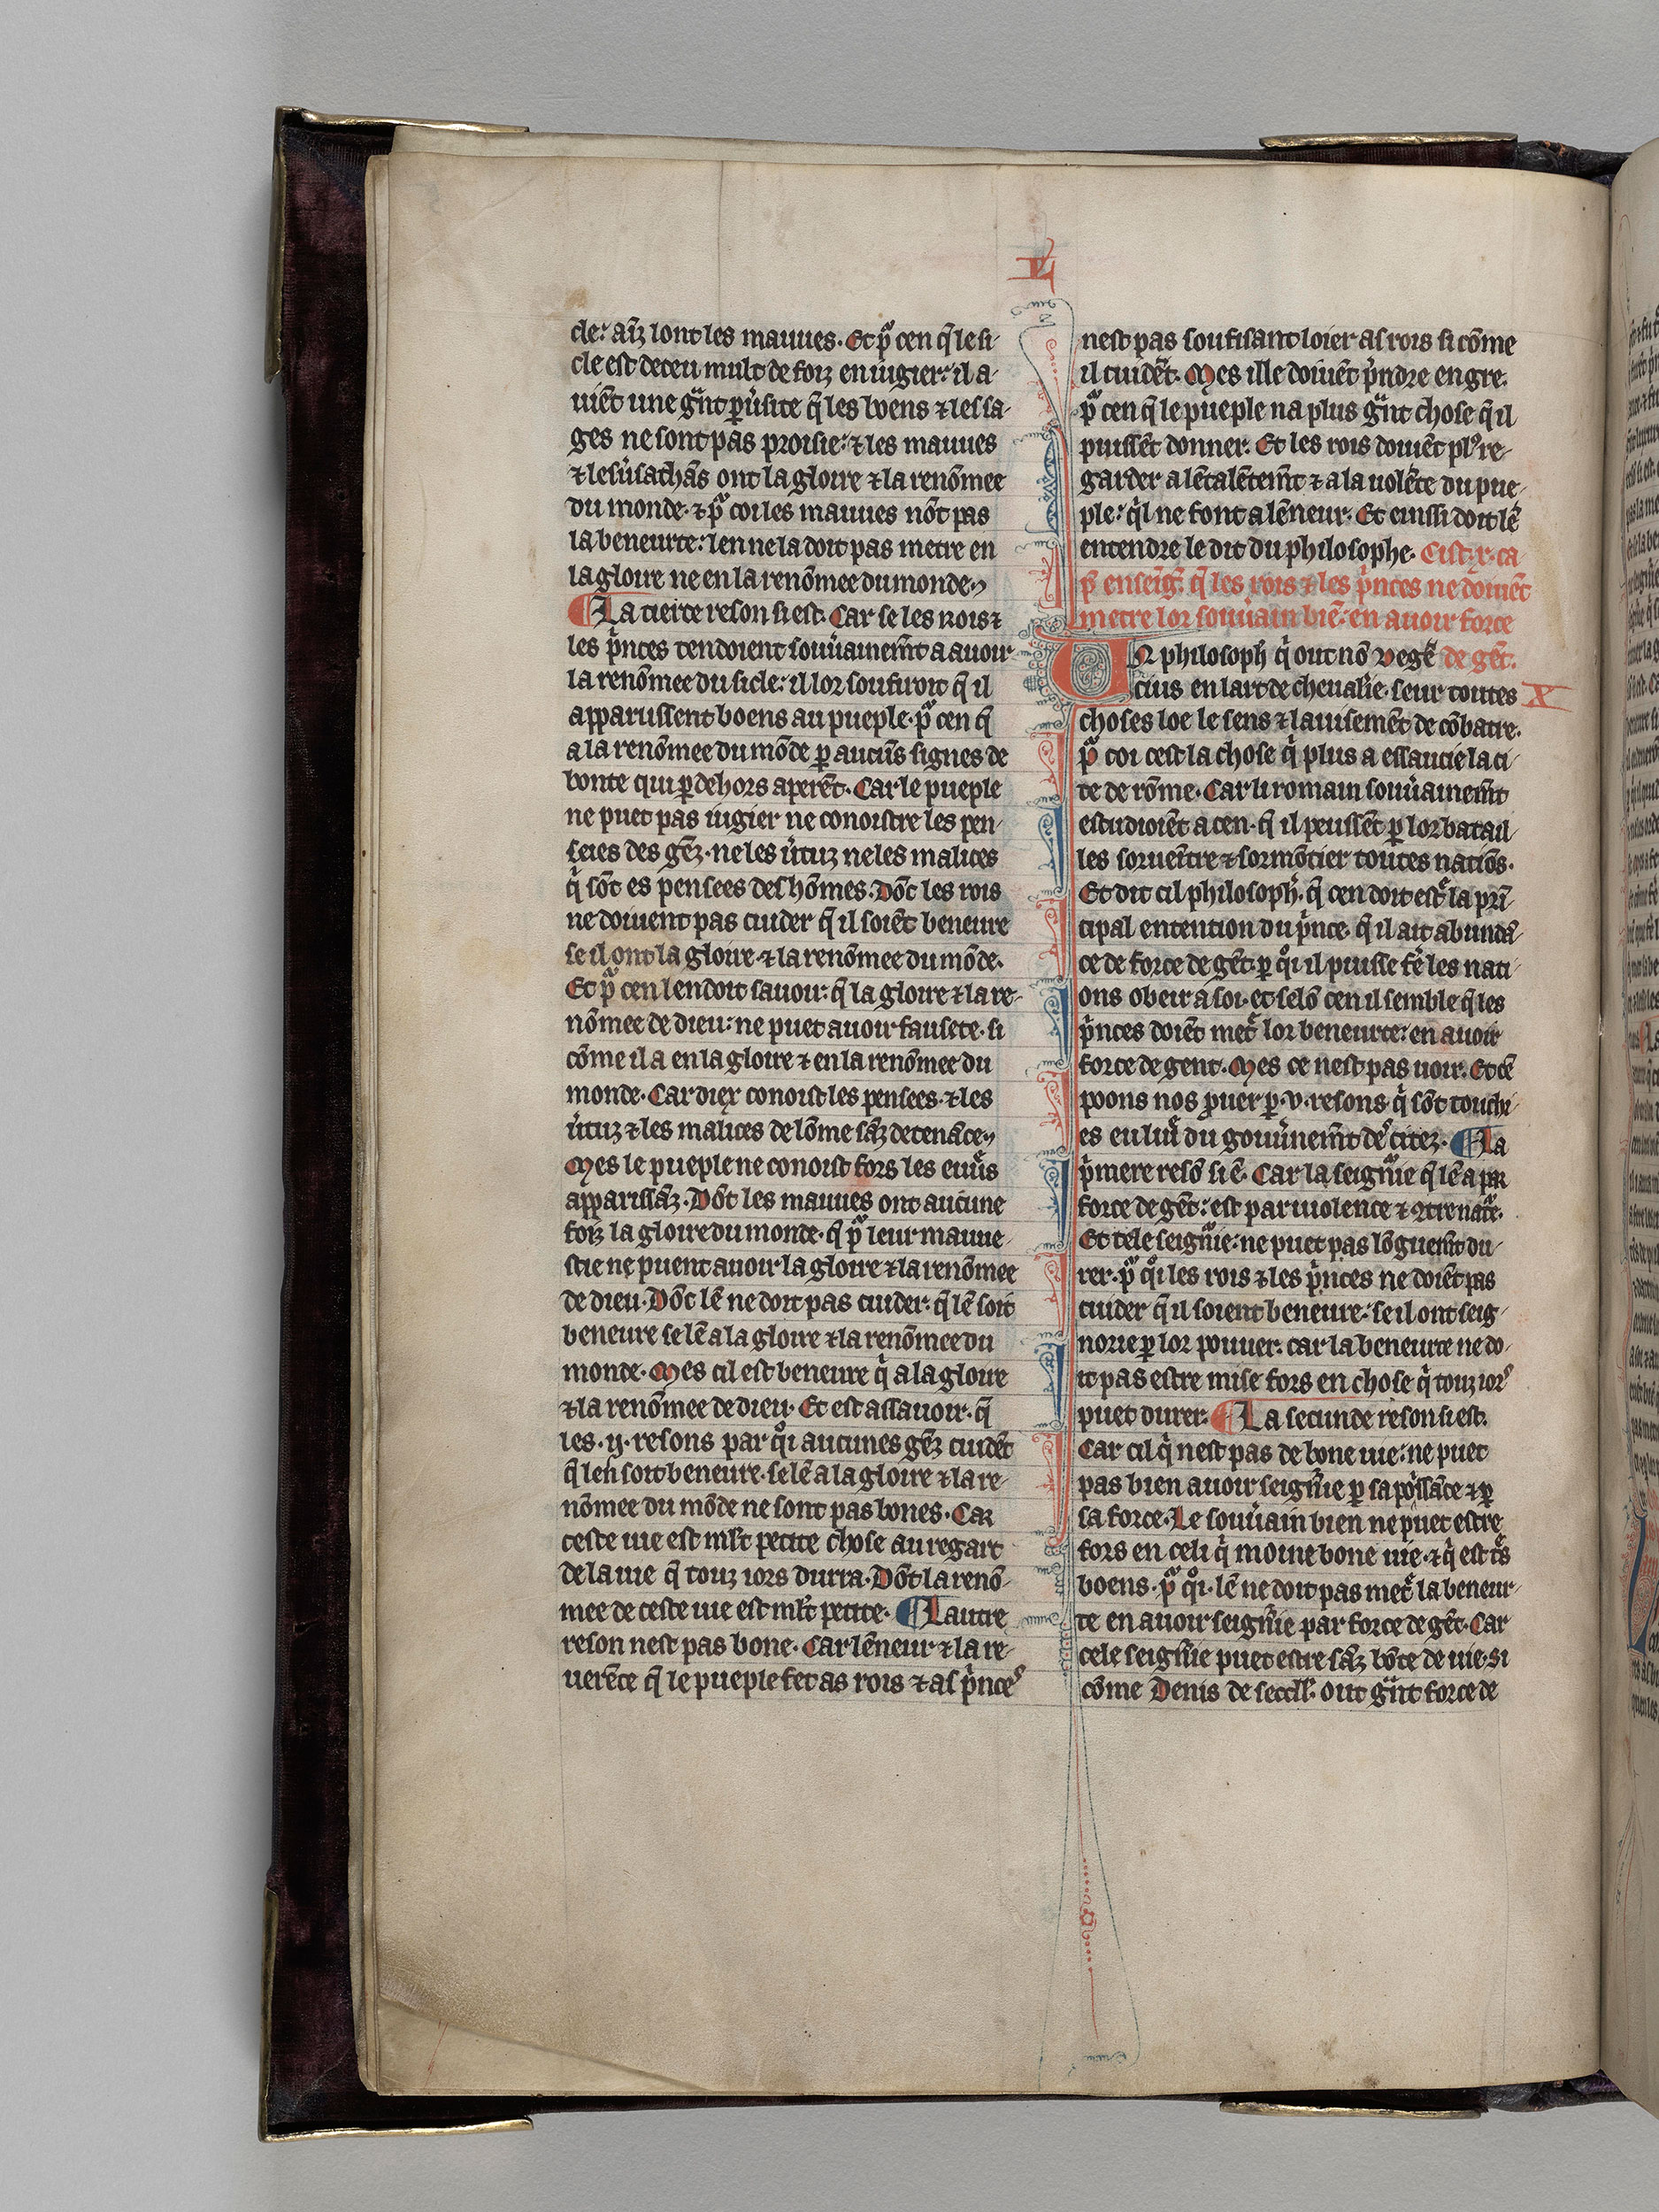 L
cle: aīz lont les mauues. Et pͣ cen q̄ le si-
cle est deceu mult de foiz en iugier: il a-
uiēt une gͣnt ꝑuˀsite q̄ les boens ⁊ les sa-
ges ne sont pas proisie: ⁊ les mauues
⁊ les uˀsachās ont la gloire ⁊ la renōmee
du monde. ⁊ pͣ coi les mauues nōt pas
la beneurte: len ne la doit pas metre en
la gloire ne en la renōmee du monde.
¶ La tierce reson si est. Car se les rois ⁊
les pͥnces tendoient souuˀainemīt a auoir
la renōmee du sicle: il lor soufiroit q̄ il
apparussent boens au pueple. pͣ cen q̄
a la renōmee du mōde ꝑ aucūs signes de
bonte qui ꝑ dehors aperēt. Car le pueple
ne puet pas iugier ne conoistre les pen-
seies des gēz. ne les uˀtuz ne les malices
qͥ sōt es pensees des hōmes. Dōt les rois
ne doiuent pas cuider q̄ il soiēt beneure
se il ont la gloire. ⁊ la renōmee du mōde.
Et pͣ cen len doit sauoir: q̄ la gloire ⁊ la re-
nōmee de dieu: ne puet auoir fausete. si
cōme il a en la gloire ⁊ en la renōmee du
monde. Car diex conoist les pensees. ⁊ les
uˀtuz ⁊ les malices de lōme sāz detenāce.
Mes le pueple ne conoist fors les euuˀs
apparissāz. Dōt les mauues ont aucune
foiz la gloire du monde. q̄ pͣ leur mauue-
stie ne puent auoir la gloire ⁊ la renōmee
de dieu. Dōt lē ne doit pas cuider. q̄ lē soit
beneure se lē a la gloire ⁊ la renōmee du
monde. Mes cil est beneure qͥ a la gloire
⁊ la renōmee de dieu. Et est assauoir. q̄
les .ij. resons par qͦi aucunes gēz cuidēt
q̄ len soit beneure. se lē a la gloire ⁊ la re-
nōmee du mōde ne sont pas bones. Car
ceste uie est mlt petite chose au regart
de la uie q̄ touz iors durra. Dōt la renō-
mee de ceste uie est mlt petite. ¶ Lautre
reson nest pas bone. Car lēneur ⁊ la re-
uerēce q̄ le pueple fet as rois ⁊ as pͥnces
nest pas soufisant loier as rois si cōme
il cuidēt. Mes il le doiuēt pˀndre en gre.
pͣ cen q̄ le pueple na plus gͣnt chose q̄ il
puissēt donner. Et les rois doiuēt plꝰ re-
garder a lētalētemīt ⁊ a la uolēte du pue-
ple: qͥl ne font a lēneur. Et einssi doit lē
entendre le dit du philosophe. Cist .x. ca
p̄ enseiḡ. q̄ les rois ⁊ les pͥnces ne doiuēt
metre lor souuˀain biē: en auoir force
Un philosoph̄ qͥ out nō Vege- de gēt.
cius en lart de cheualie. seur toutes X
choses loe le sens ⁊ lauisemēt de cōbatre.
pͣ coi cest la chose qͥ plus a essaucie la ci-
te de rōme. Car li romain souuˀainemīt
estudioiēt a cen. q̄ il peussēt ꝑ lor batail-
les soruentre ⁊ sormōtier toutes natiōs.
Et dit cil philosoph̄. q̄ cen doit estˀ la prī-
cipal entention du pͥnce. q̄ il ait abundā-
ce de force de gēt. ꝑ qͦi il puisse fˀe les nati-
ons obeir a soi. et selō cen il semble q̄ les
pͥnces doiēt metˀ lor beneurte: en auoir
force de gent. Mes ce nest pas uoir. Et cē
poons nos ꝓuer ꝑ .v. resons. qͥ sōt touchi-
es eu luiˀ du gouuˀnemīt des citez. ¶ La
pͥmere resō si ē. Car la seignˀie q̄ lē a par
force de gēt: est par uiolence ⁊ ꝯtre natˀe.
Et tele seignˀie: ne puet pas lōguemīt du-
rer. pͣ qͦi les rois ⁊ les pͥnces ne doiēt pas
cuider q̄ il soient beneure: se il ont seig-
norie ꝑ lor pouuer. car la beneurte ne do-
it pas estre mise fors en chose qͥ touz iors
puet durer. ¶ La secunde reson si est.
Car cil qͥ nest pas de bone uie: ne puet
pas bien auoir seignˀie ꝑ sa poissāce ⁊ ꝑ
sa force. Le souuˀain bien ne puet estre
fors en celi qͥ moine bone uie. ⁊ qͥ est tˀs
boens. pͣ qͦi. lē ne doit pas metˀ la beneur-
te en auoir seignˀie par force de gēt. Car
cele seignˀie puet estre sāz bōte de uie. si
cōme Denis de secell̄. out gͣnt force de